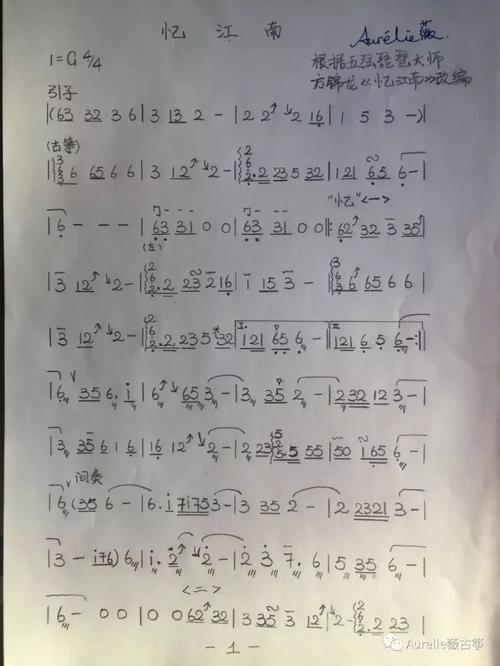 忆 江 南
Aurélie薇
1=G 4/4
根据五弦琵琶大师
方锦龙《忆江南》改编
引子
|(63 32 3 6|3 13 2 -|2 2 2 16|1 5 3 -)|
(古筝)
6 65 6 6|3 12 2-|2.2 23 5 32|121 65 6-|
"忆"<一>
|6 - - -|63 31 0 0|63 31 0 0|:62 32 3 35|
(左)
|3 12 2-|2.2 23 216|1 15 3 -|6 65 6 6|
|3 12 2-|2.2 235 32|121 65 6 -|121 6 5 6-:|
|6 35 6.i|6 65 3-|3 35 2 -|232 12 3-|
|3 35 6 1 6|16 12 2-|2 23 5.5 55|50 165 6-|
间奏
|6 (35 6 -|6.i 7i753-|3 35 2 -|2 2321 3-|
|3 - i76) 6|i.2 2-|2 3 7.6|5 35 6 -|
<二>
|6- 0 0|0 0 62 32|3 35 3 12|2- 2.2 23|
- 1 -
Aurelie薇古筝